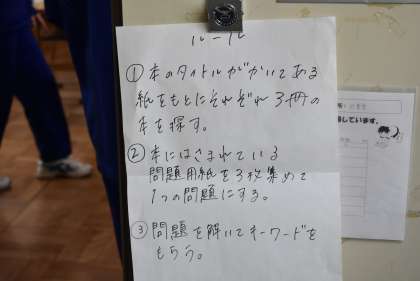 ルール
①本のタイトルがかいてある
紙をもとにそれぞれ3冊の
本を探す。
②本にはさまれている
問題用紙を3枚集めて
1つの問題にする。
③問題を解いてキーワードを
もらう。
しています。